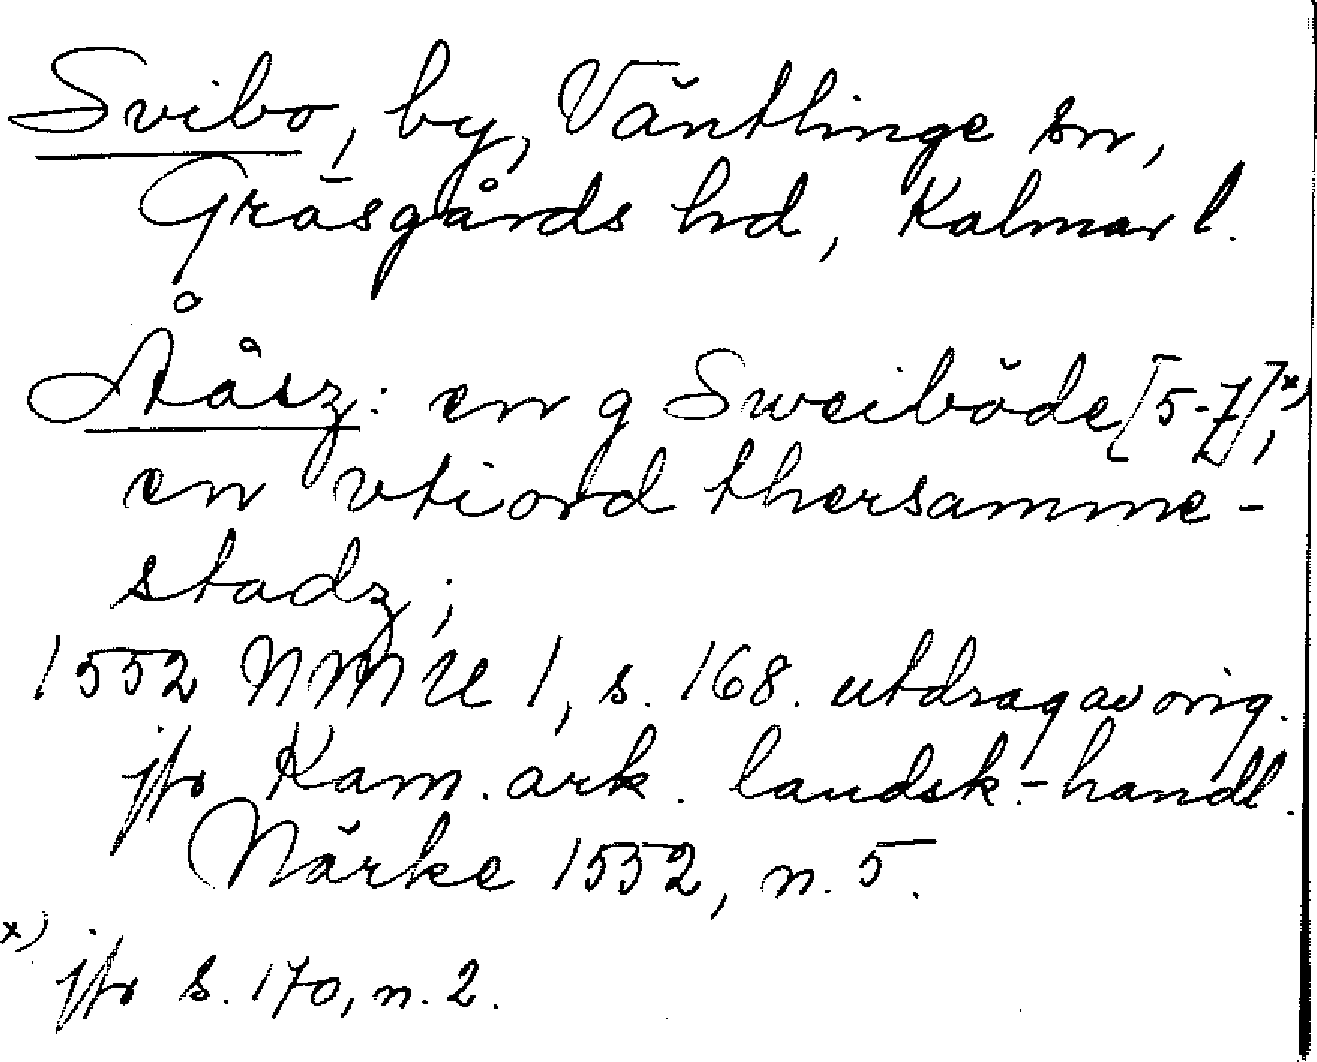 Svibo, by, Väntlinge sn,
Gräsgårds hd, Kalmar l.
Åtåsz: en g Sweiböde [5-7]x),
en vtiord thersamme-
stadz;
1552 NMU 1, s. 168. utdrag av orig.
jfr Kam. ark. landsk.-handl.
Närke 1552, n. 5.
x) jfr s. 170, n. 2.